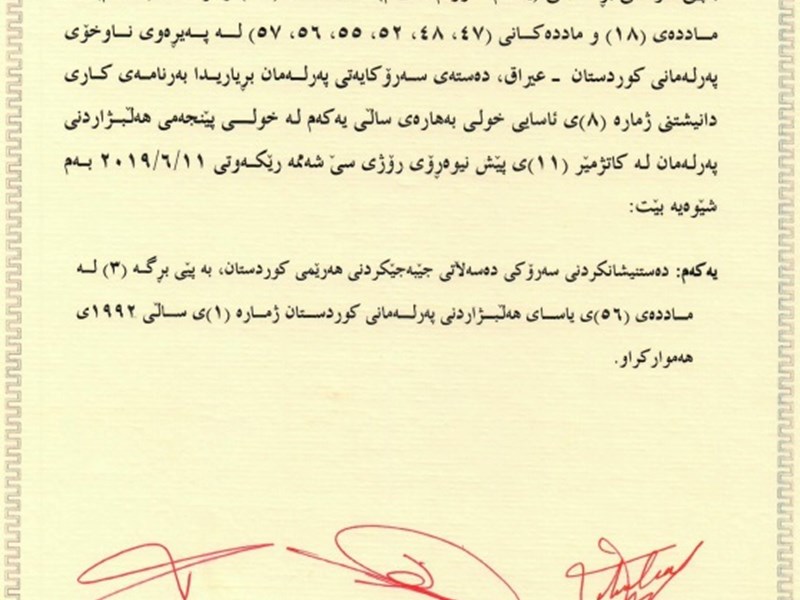 ماددەی (١٨) و ماددەکانی (٤٧، ٤٨، ٥٢، ٥٥، ٥٦، ٥٧) لە پەیڕەوی ناوخۆی
پەرلەمانی کوردستان - عیراق، دەستەی سەرۆکایەتی پەرلەمان بڕیاریدا بەرنامەی کاری
دانیشتنی ژمارە (٨)ی ئاسایی خولی بەهارەی ساڵی یەکەم لە خولی پێنجەمی هەڵبژاردنی
پەرلەمان لە کاتژمێر (١١)ی پێش نیوەڕۆی رۆژی سێ شەممە رێکەوتی ٢٠١٩/٦/١١ بەم
شێوەیە بێت:
یەکەم: دەستنیشانکردنی سەرۆکی دەسەڵاتی جێبەجێکردنی هەرێمی کوردستان، بە پێی بڕگە (٣) لە
ماددەی (٥٦)ی یاسای هەڵبژاردنی پەرلەمانی کوردستان ژمارە (١)ی ساڵی ١٩٩٢ی
هەموارکراو.